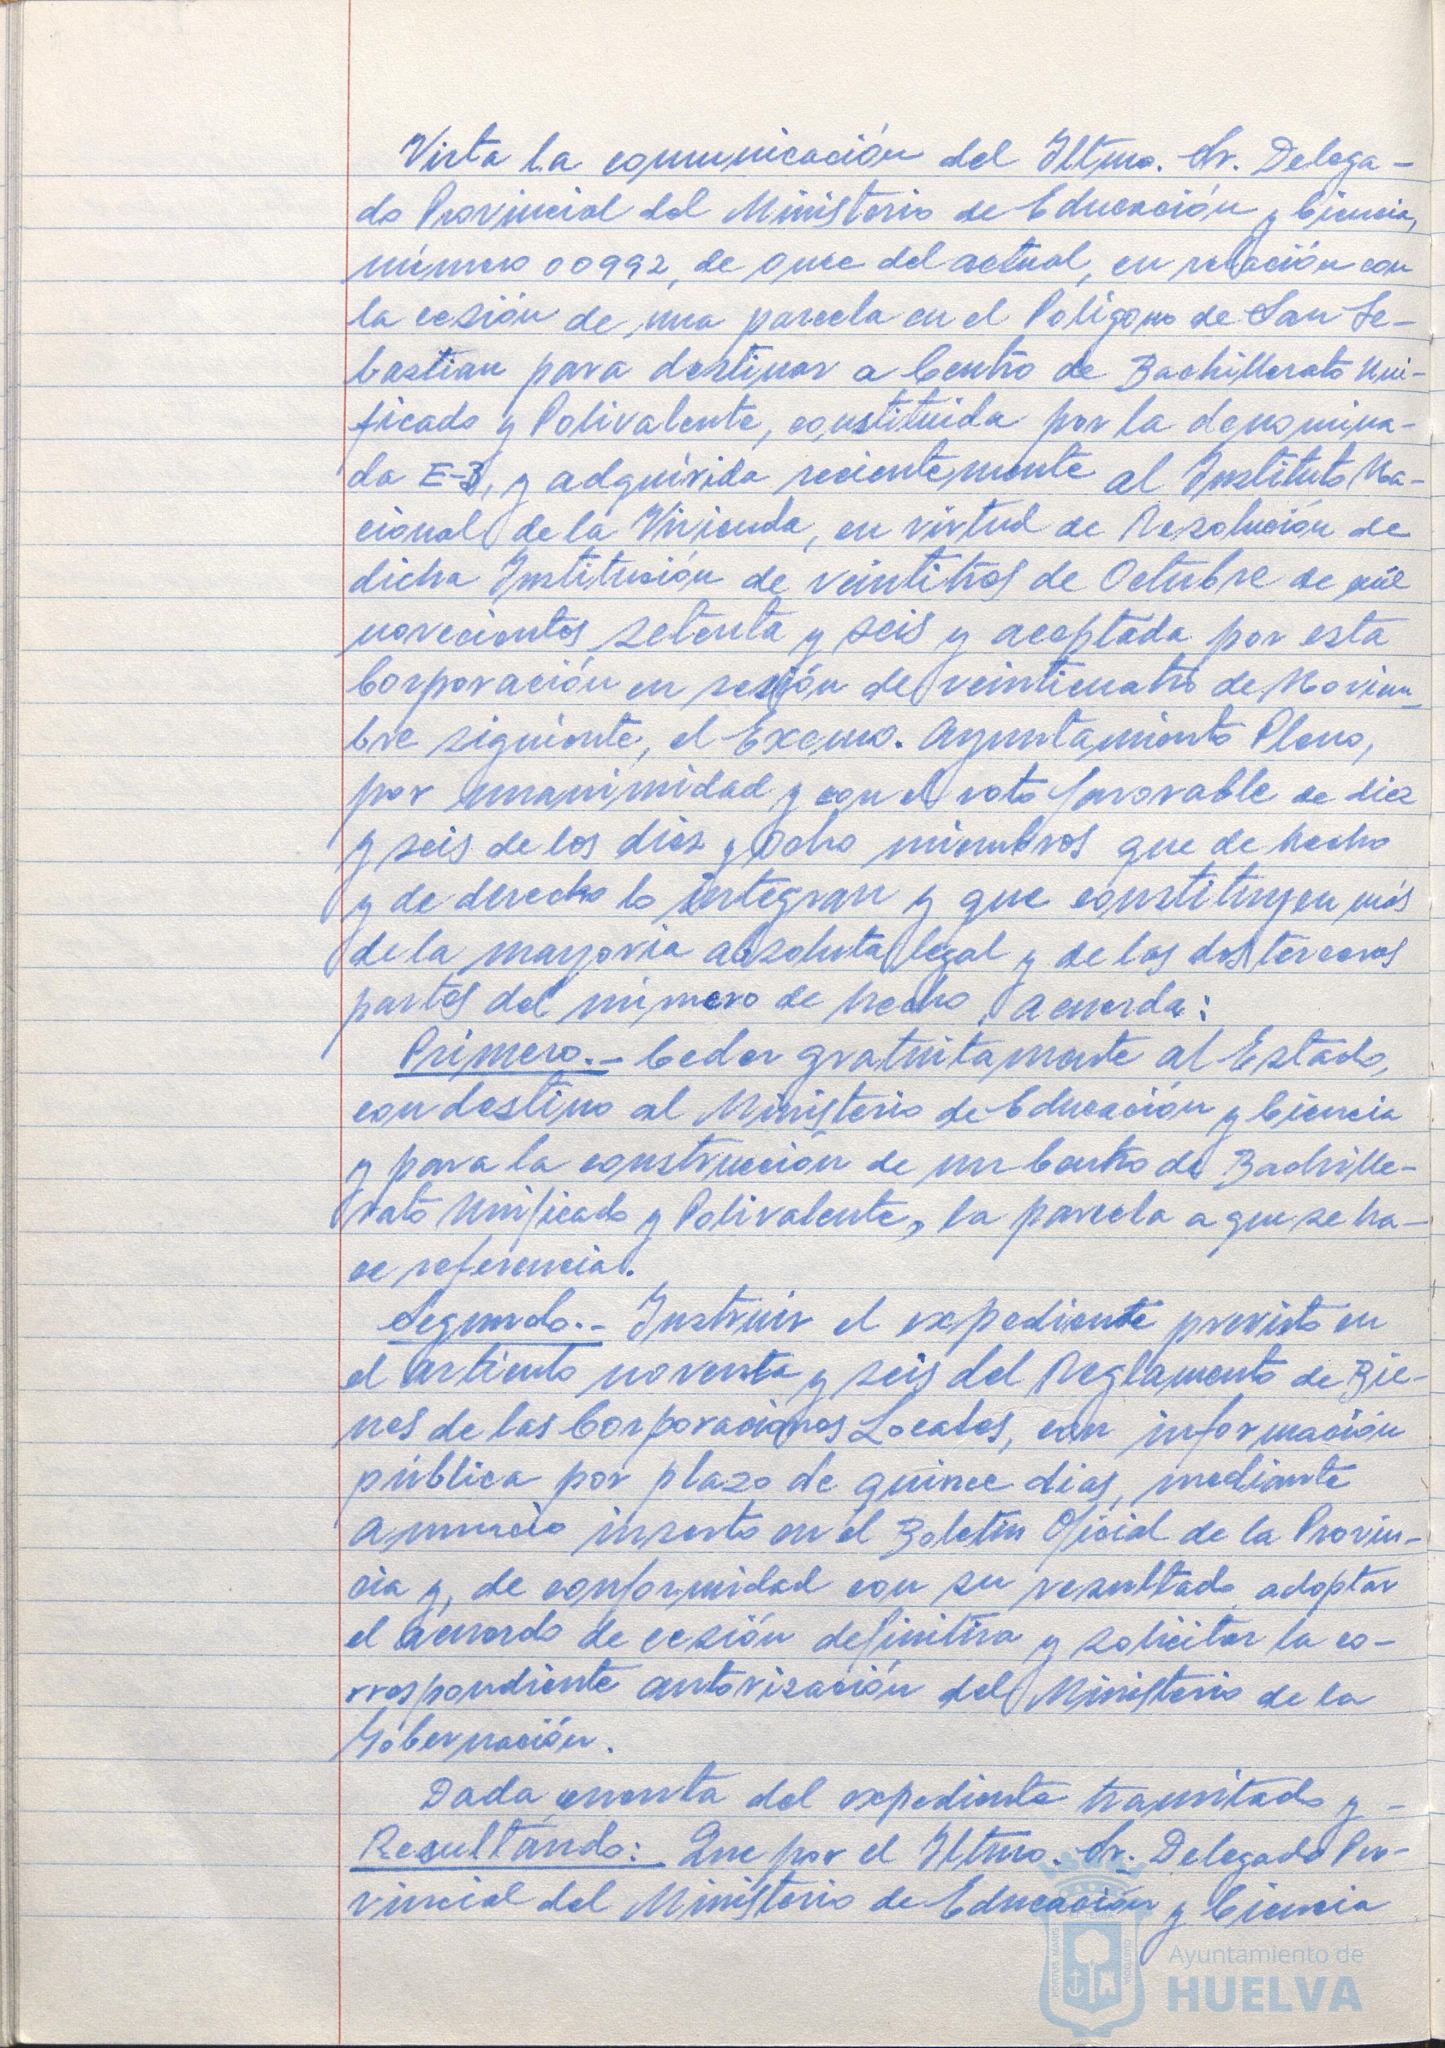 Vista la comunicación del Iltmo. Sr. Delega-
do Provincial del Ministerio de Educación y Ciencia,
número 00992, de once del actual, en relación con
la cesión de una parcela en el Polígono de San Se-
bastian para destinar a Centro de Bachillerato Uni-
ficado y Polivalente, constituida por la denomina-
da E-3, y adquirida recientemente al Instituto Na-
cional de la Vivienda, en virtud de Resolución de
dicha Institución de veintitrés de Octubre de mil
novecientos setenta y seis y aceptada por esta
Corporación en sesión de veinticuatro de Noviem-
bre siguiente, el Excmo. Ayuntamiento Pleno,
por unanimidad y con el voto favorable de diez
y seis de los diez y ocho miembros que de hecho
y de derecho lo integran y que constituyen más
de la mayoria absoluta legal y de las dos terceras
partes del número de hecho, acuerda:
Primero.- Ceder gratuitamente al Estado,
con destino al Ministerio de Educación y Ciencia
y para la construcción de un Centro de Bachille-
rato Unificado y Polivalente, la parcela a que se ha-
ce referencia.
Segundo.- Instruir el expediente previsto en
el artículo noventa y seis del Reglamento de Bie-
nes de las Corporaciones Locales, con información
pública por plazo de quince dias, mediante
anuncio inserto en el Boletín Oficial de la Provin-
cia y, de conformidad con su resultado adoptar
el acuerdo de cesión definitiva y solicitar la co-
rrespondiente autorización del Ministerio de la
Gobernación.
Dada cuenta del expediente tramitado y -
Resultando: Que por el Iltmo. Sr. Delegado Pro-
vincial del Ministerio de Educación y Ciencia
Ayuntamiento de
HUELVA